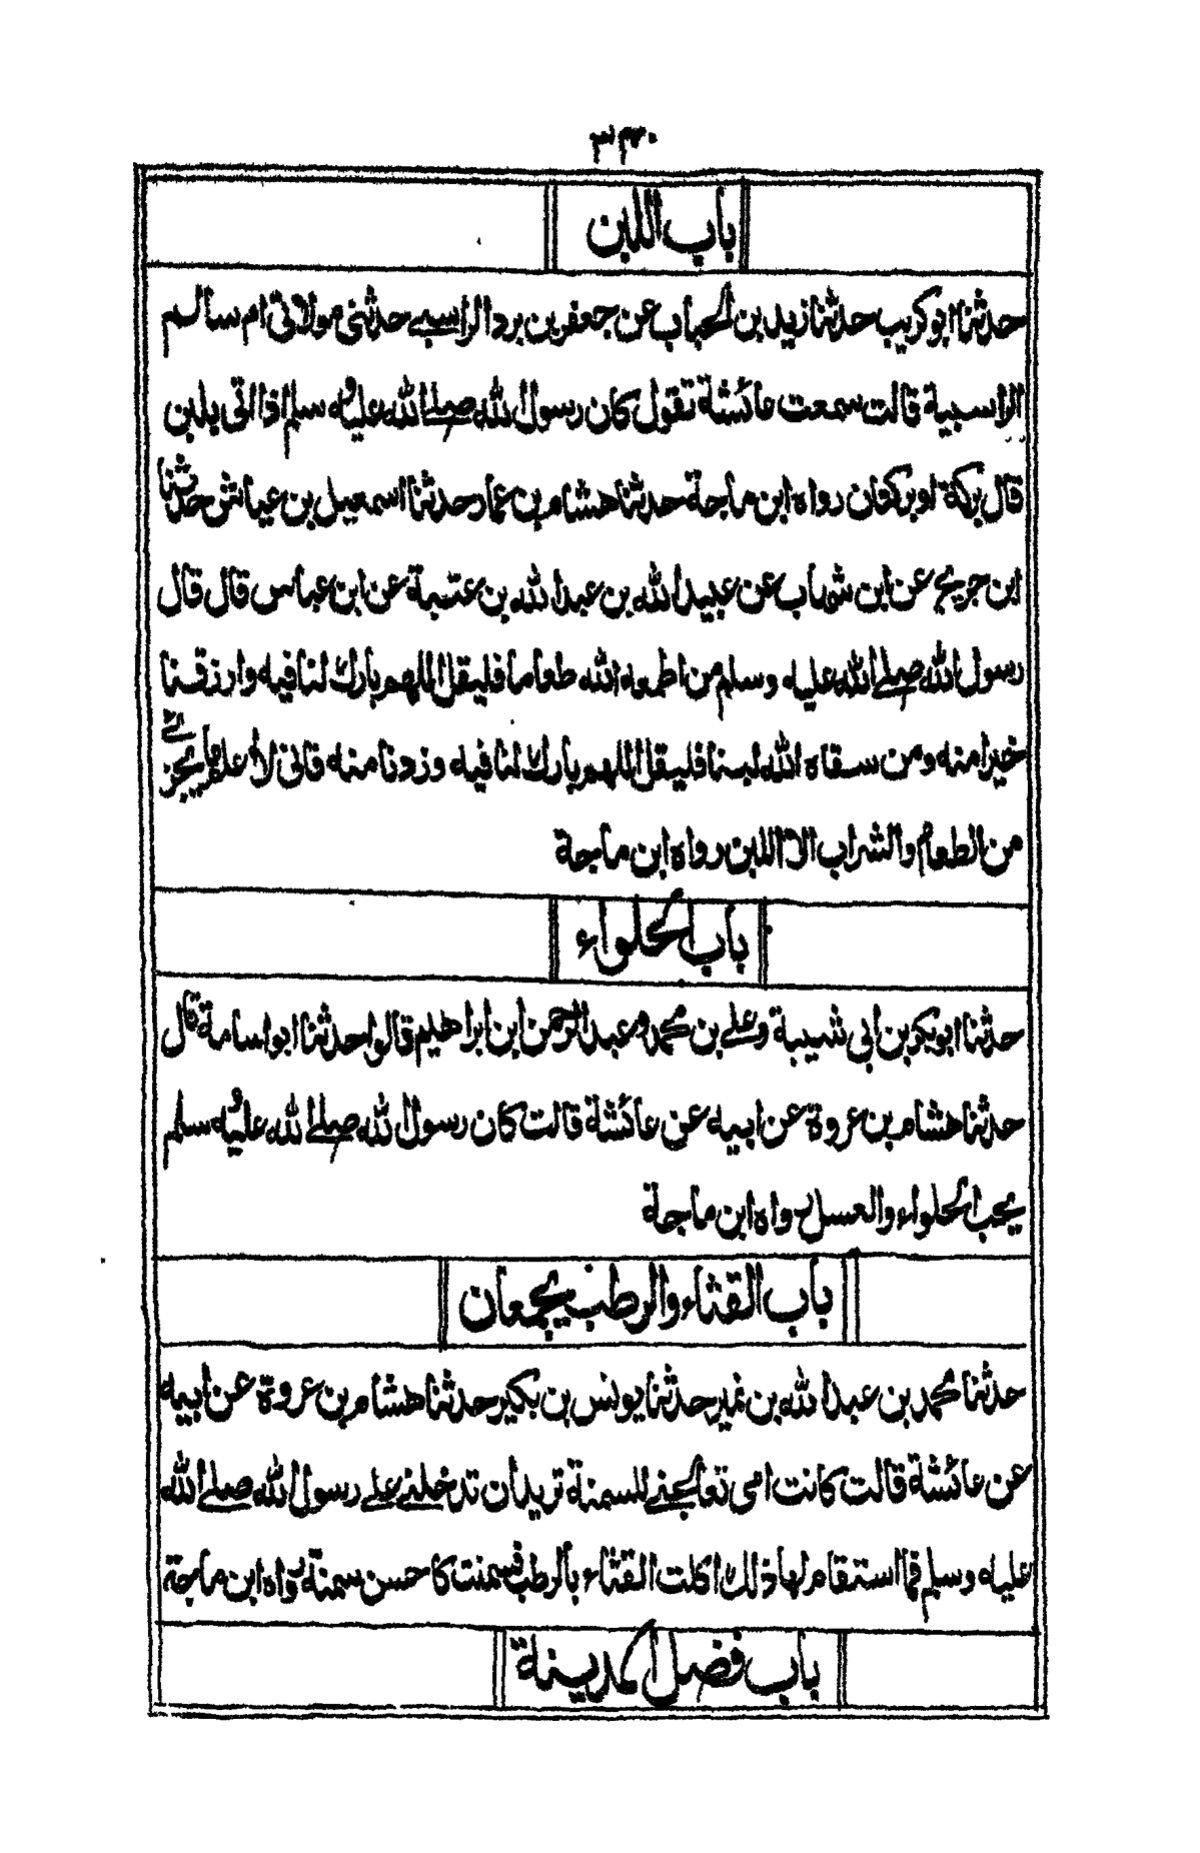 ٣٣٠
باب اللبن
حدثنا ابو كريب حدثنا زيد بن الحباب عن جعفر بن برد الراسبے حدثنى مولاتى ام سالم
الراسبية قالت سمعت عائشة تقول كان رسول الله صلے الله عليه وسلم اذا اتى بلبن
قال بركة او بركتان رواه ابن ماجة حدثنا هشام بن عمار حدثنا اسمعيل بن عياش حدثنا
ابن جريج عن ابن شهاب عن عبيد الله بن عبد الله بن عتبة عن ابن عباس قال قال
رسول الله صلے الله عليه وسلم من اطعمه الله طعاما فليقل اللهم بارك لنا فيه وارزقنا
خيرا منه ومن سقاه الله لبنا فليقل اللهم بارك لنا فيه وزدنا منه فانى لا اعلم ما يجزئے
من الطعام والشراب الا اللبن رواه ابن ماجة
باب الحلواء
حدثنا ابو بكر بن ابى شيبة وعلے بن محمد وعبد الرحمن ابن ابراهيم قالوا حدثنا ابو اسامة قال
حدثنا هشام بن عروة عن ابيه عن عائشة قالت كان رسول الله صلے الله عليه وسلم
يحب الحلواء والعسل رواه ابن ماجة
باب القثاء والرطب يجمعان
حدثنا محمد بن عبد الله بن نمير حدثنا يونس بن بكير حدثنا هشام بن عروة عن ابيه
عن عائشة قالت كانت امى تعالجنے للسمنة تريد ان تدخلنے علے رسول الله صلے الله
عليه وسلم فما استقام لها ذلك اكلت القثاء بالرطب فسمنت كاحسن سمنة رواه ابن ماجة
باب فضل المدينة